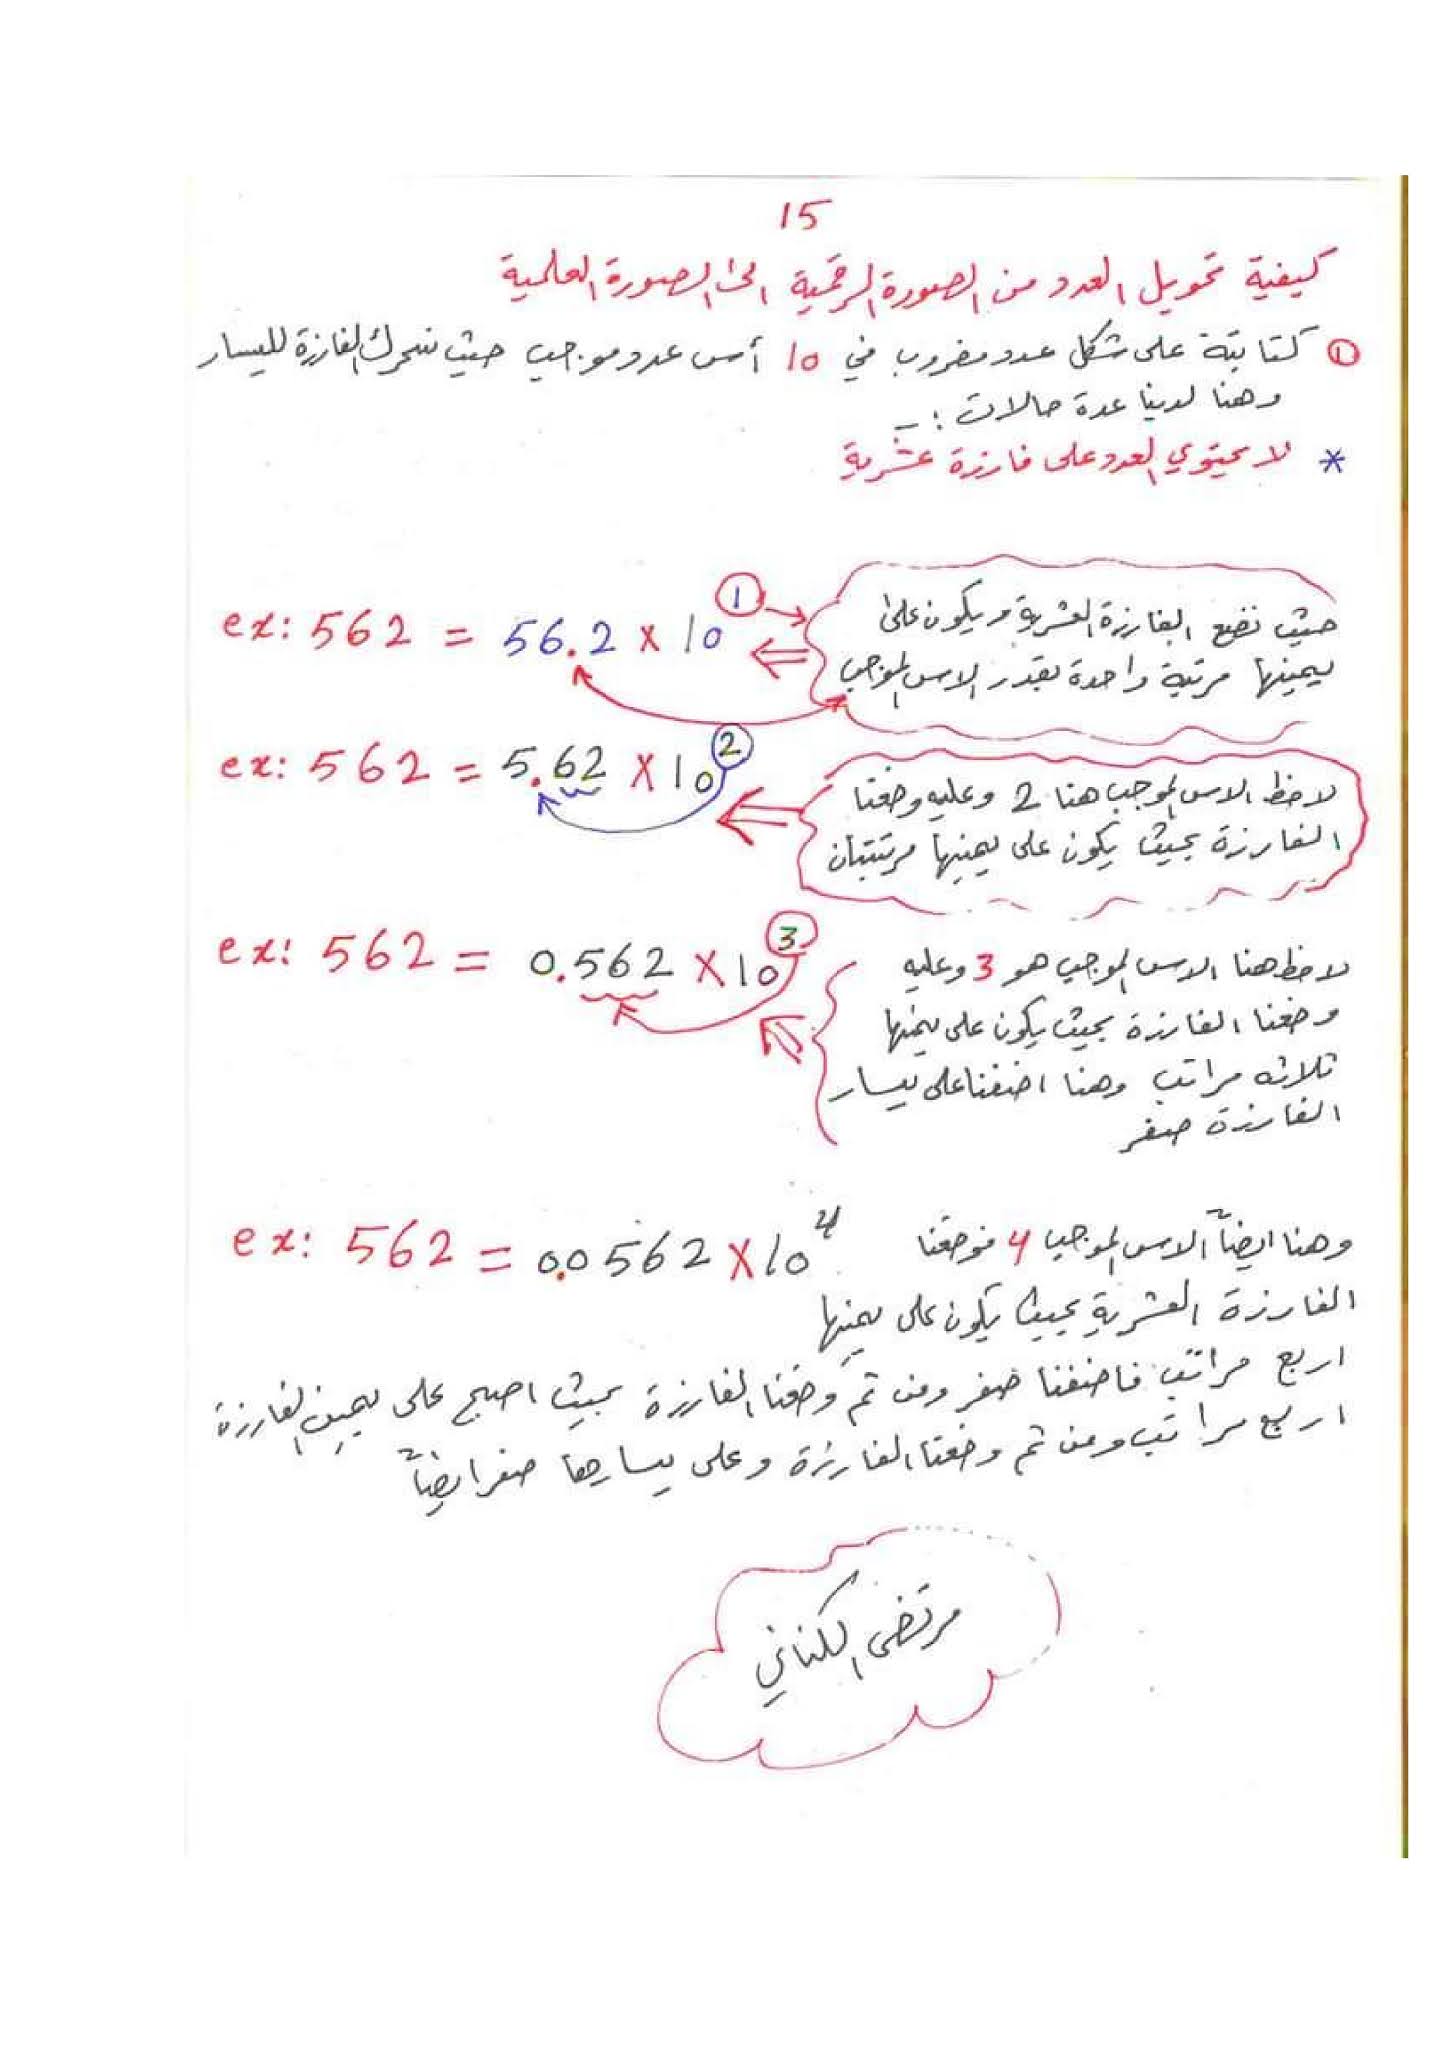 15
كيفية تحويل العدد من الصورة الرقمية الى الصورة العلمية
① كتابتة على شكل عدد مضروب في 10 أس عدد موجب حيث نحرك الفارزة لليسار
وهنا لدينا عدة حالات :ـ
* لا يحتوي العدد على فارزة عشرية
ex: 562 = 56.2 x 10¹
حيث نضع الفارزة العشرية ويكون على
يمينها مرتبة واحدة بقدر الاس الموجب
ex: 562 = 5.62 x 10²
لاحظ الاس الموجب هنا 2 وعليه وضعنا
الفارزة بحيث يكون على يمينها مرتبتان
ex: 562 = 0.562 x 10³
لاحظ هنا الاس الموجب هو 3 وعليه
وضعنا الفارزة بحيث يكون على يمينها
ثلاثه مراتب وهنا اضفنا على يسار
الفارزة صفر
ex: 562 = 0.0562 x 10⁴
وهنا ايضاً الاس الموجب 4 فوضعنا
الفارزة العشرية بحيث يكون على يمينها
اربع مراتب فاضفنا صفر ومن ثم وضعنا الفارزة بحيث اصبح على يمين الفارزة
اربع مراتب ومن ثم وضعنا الفارزة وعلى يسارها صفر ايضاً
مرتضى الكناني